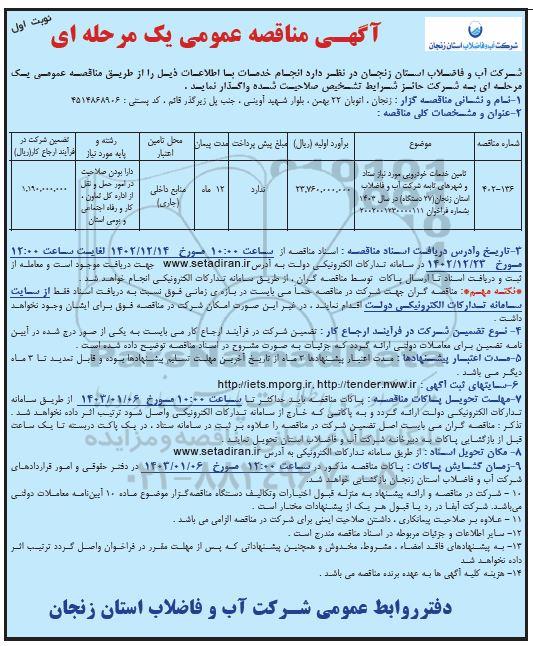 نوبت اول
شرکت آب و فاضلاب استان زنجان
آگهـی مناقصه عمومی یک مرحله ای
شرکت آب و فاضلاب استان زنجان در نظر دارد انجام خدمات با اطلاعات ذیل را از طریق مناقصه عمومی یک
مرحله ای به شرکت حائز شرایط تشخیص صلاحیت شده واگذار نماید .
۱-نام و نشانی مناقصه گزار : زنجان ، اتوبان ۲۲ بهمن ، بلوار شهید آوینی ، جنب پل زیرگذر قائم ، کد پستی : ۴۵۱۴۸۶۸۹۰۶
۲-عنوان و مشخصات کلی مناقصه :
شماره مناقصه | موضوع | برآورد اولیه (ریال) | مبلغ پیش پرداخت | مدت پیمان | محل تامین اعتبار | رشته و پایه مورد نیاز | تضمین شرکت در فرآیند ارجاع کار(ریال)
۴۰۲-۱۳۶ | تامین خدمات خودرویی مورد نیاز ستاد و شهرهای تابعه شرکت آب و فاضلاب استان زنجان(۲۷ دستگاه) در سال ۱۴۰۳ بشماره فراخوان ۲۰۰۲۰۰۱۲۳۰۰۰۰۱۱۱ | ۲۳,۷۶۰,۰۰۰,۰۰۰ | ندارد | ۱۲ ماه | منابع داخلی (جاری) | دارا بودن صلاحیت در امور حمل و نقل از اداره کل تعاون ، کار و رفاه اجتماعی و بومی استان | ۱,۱۹۰,۰۰۰,۰۰۰
۳-تاریخ وآدرس دریافت اسناد مناقصه : اسناد مناقصه از ساعت ۱۰:۰۰ مورخ ۱۴۰۲/۱۲/۱۴ لغایت ساعت ۱۲:۰۰
مورخ ۱۴۰۲/۱۲/۲۳ در سامانه تدارکات الکترونیکی دولت به آدرس www.setadiran.ir جهت دریافت موجود است و معامله از
ثبت و دریافت اسناد تا ارسال پاکات توسط مناقصه گران ، از طریق سامانه تدارکات الکترونیکی انجام خواهد شد.
*نکته مهم*: مناقصه گران جهت شرکت در مناقصه حتما می بایست در بازه‌ی زمانی فوق نسبت به دریافت اسناد فقط از سایت
سامانه تدارکات الکترونیکی دولت اقدام نمایند ، در غیر این صورت امکان شرکت در مناقصه فوق برای ایشان وجود نخواهد
داشت .
۴- نوع تضمین شرکت در فرآیند ارجاع کار : تضمین شرکت در فرآیند ارجاع کار می بایست به یکی از صور درج شده در آیین
نامه تضمین برای معاملات دولتی ارائه گردد که جزئیات به صورت مشروح در اسناد مناقصه توضیح داده شده است .
۵-مدت اعتبار پیشنهادها : مدت اعتبار پیشنهادها ۳ ماه از تاریخ آخرین مهلت تسلیم پیشنهادها بوده و قابل تمدید تا ۳ ماه
دیگر می باشد .
۶-سایتهای ثبت آگهی : http://iets.mporg.ir, http://tender.nww.ir
۷-مهلت تحویل پاکات مناقصه : پاکات مناقصه باید حداکثر تا ساعت ۱۰:۰۰ مورخ ۱۴۰۳/۰۱/۰۶ از طریق سامانه
تدارکات الکترونیکی دولت ارائه گردد و به پاکاتی که خارج از سامانه تدارکات الکترونیکی واصل شود ترتیب اثر داده نخواهد شد .
تذکر : مناقصه گران می بایست اصل تضمین شرکت در مناقصه را علاوه بر ثبت در سامانه ستاد ، در یک پاکت دربسته تا یک ساعت
قبل از بازگشایی پاکات به دبیرخانه شرکت آب و فاضلاب استان تحویل نمایند .
۸- مکان تحویل اسناد : از طریق سامانه تدارکات الکترونیکی به آدرس www.setadiran.ir
۹-زمان گشایش پاکات : پاکات مناقصه مذکور در ساعت ۱۲:۰۰ مورخ ۱۴۰۳/۰۱/۰۶ در دفتر حقوقی و امور قراردادهای
شرکت آب و فاضلاب استان زنجان بازگشایی خواهد شد.
۱۰ - شرکت در مناقصه و ارائه پیشنهاد به منزله قبول اختیارات وتکالیف دستگاه مناقصه‌گزار موضوع ماده ۱۰ آیین‌نامه معاملات دولتی
می‌باشد. شرکت آبفا در رد یا قبول هر یک از پیشنهادات مختار است .
۱۱ - علاوه بر صلاحیت پیمانکاری ، داشتن صلاحیت ایمنی برای شرکت در مناقصه الزامی می باشد .
۱۲- سایر اطلاعات و جزئیات مربوطه در اسناد مناقصه مندرج است .
۱۳- به پیشنهادهای فاقد امضاء ، مشروط، مخدوش و همچنین پیشنهاداتی که پس از مهلت مقرر در فراخوان واصل گردد ترتیب اثر
داده نخواهد شد
۱۴- هزینه کلیه آگهی ها به عهده برنده مناقصه می باشد .
دفترروابط عمومی شرکت آب و فاضلاب استان زنجان